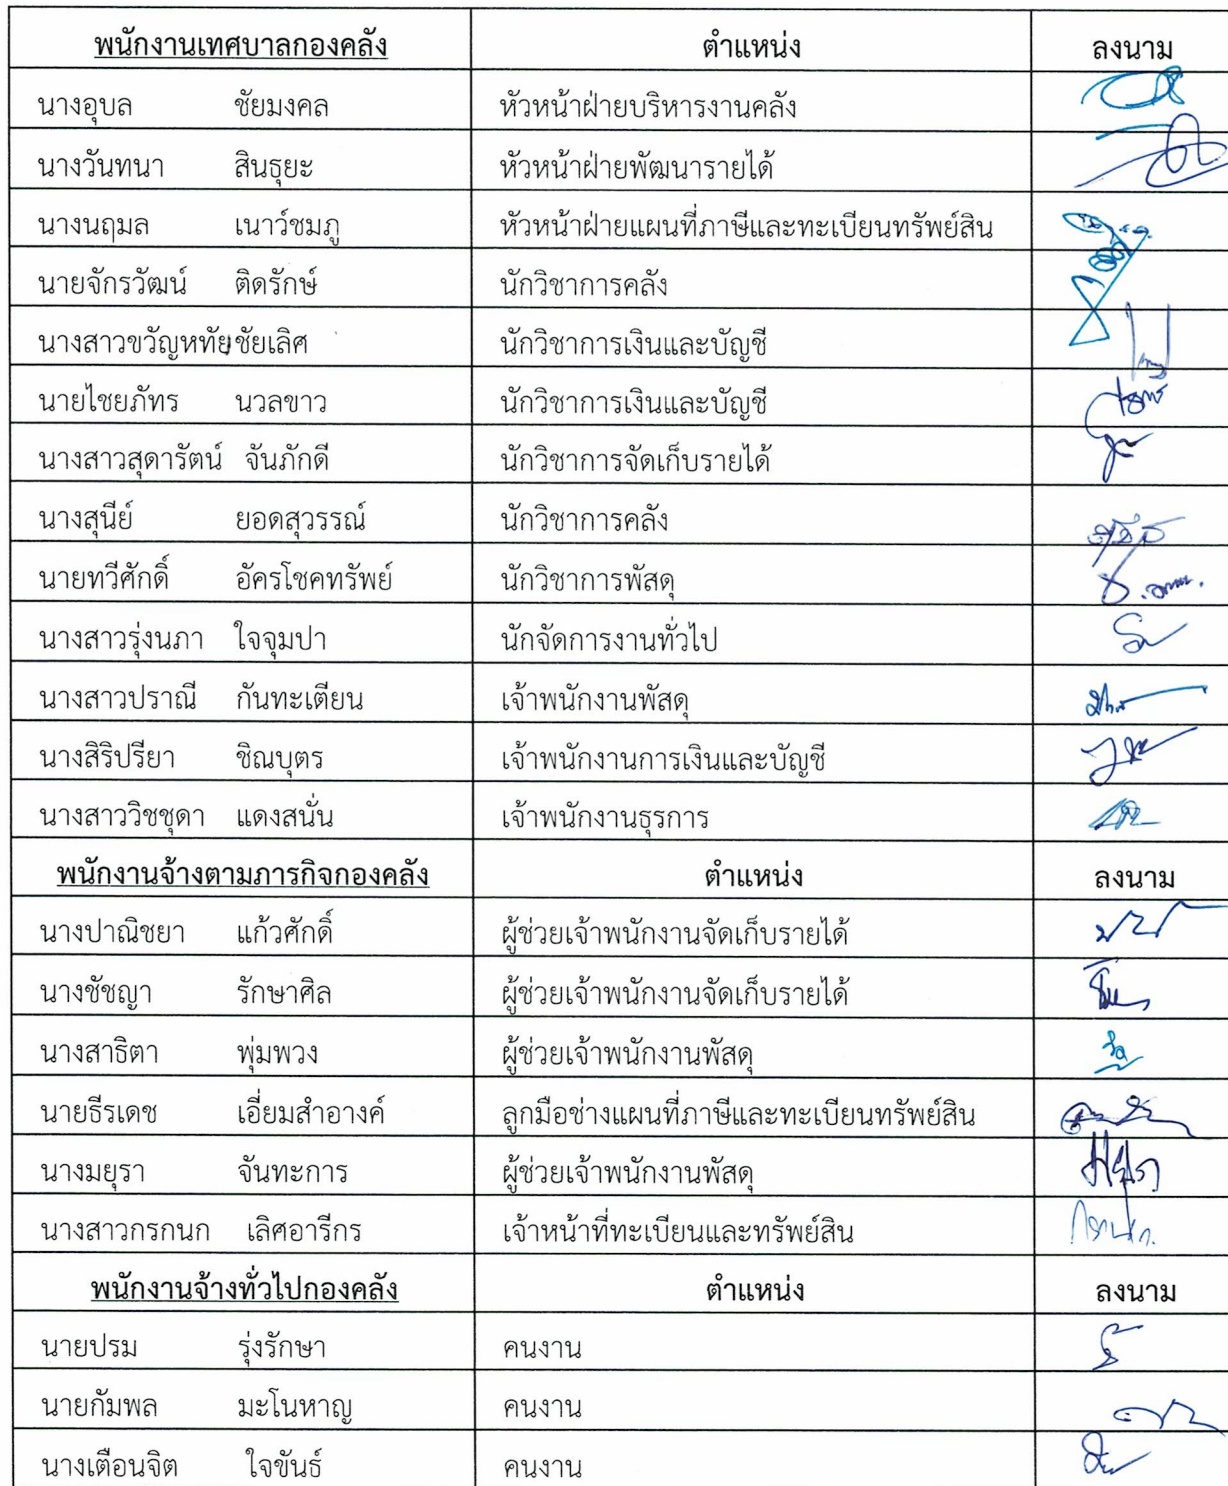 พนักงานเทศบาลกองคลัง ตำแหน่ง ลงนาม
นางอุบล ชัยมงคล หัวหน้าฝ่ายบริหารงานคลัง
นางวันทนา สินธุยะ หัวหน้าฝ่ายพัฒนารายได้
นางนฤมล เนาว์ชมภู หัวหน้าฝ่ายแผนที่ภาษีและทะเบียนทรัพย์สิน
นายจักรวัฒน์ ติดรักษ์ นักวิชาการคลัง
นางสาวขวัญหทัย ชัยเลิศ นักวิชาการเงินและบัญชี
นายไชยภัทร นวลขาว นักวิชาการเงินและบัญชี
นางสาวสุดารัตน์ จันภักดี นักวิชาการจัดเก็บรายได้
นางสุนีย์ ยอดสุวรรณ์ นักวิชาการคลัง
นายทวีศักดิ์ อัครโชคทรัพย์ นักวิชาการพัสดุ
นางสาวรุ่งนภา ใจจุมปา นักจัดการงานทั่วไป
นางสาวปราณี กันทะเตียน เจ้าพนักงานพัสดุ
นางสิริปรียา ชิณบุตร เจ้าพนักงานการเงินและบัญชี
นางสาววิชชุดา แดงสนั่น เจ้าพนักงานธุรการ
พนักงานจ้างตามภารกิจกองคลัง ตำแหน่ง ลงนาม
นางปาณิชยา แก้วศักดิ์ ผู้ช่วยเจ้าพนักงานจัดเก็บรายได้
นางชัชญา รักษาศิล ผู้ช่วยเจ้าพนักงานจัดเก็บรายได้
นางสาธิตา พุ่มพวง ผู้ช่วยเจ้าพนักงานพัสดุ
นายธีรเดช เอี่ยมสำอางค์ ลูกมือช่างแผนที่ภาษีและทะเบียนทรัพย์สิน
นางมยุรา จันทะการ ผู้ช่วยเจ้าพนักงานพัสดุ มยุรา
นางสาวกรกนก เลิศอารีกร เจ้าหน้าที่ทะเบียนและทรัพย์สิน
พนักงานจ้างทั่วไปกองคลัง ตำแหน่ง ลงนาม
นายปรม รุ่งรักษา คนงาน
นายกัมพล มะโนหาญ คนงาน
นางเตือนจิต ใจขันธ์ คนงาน